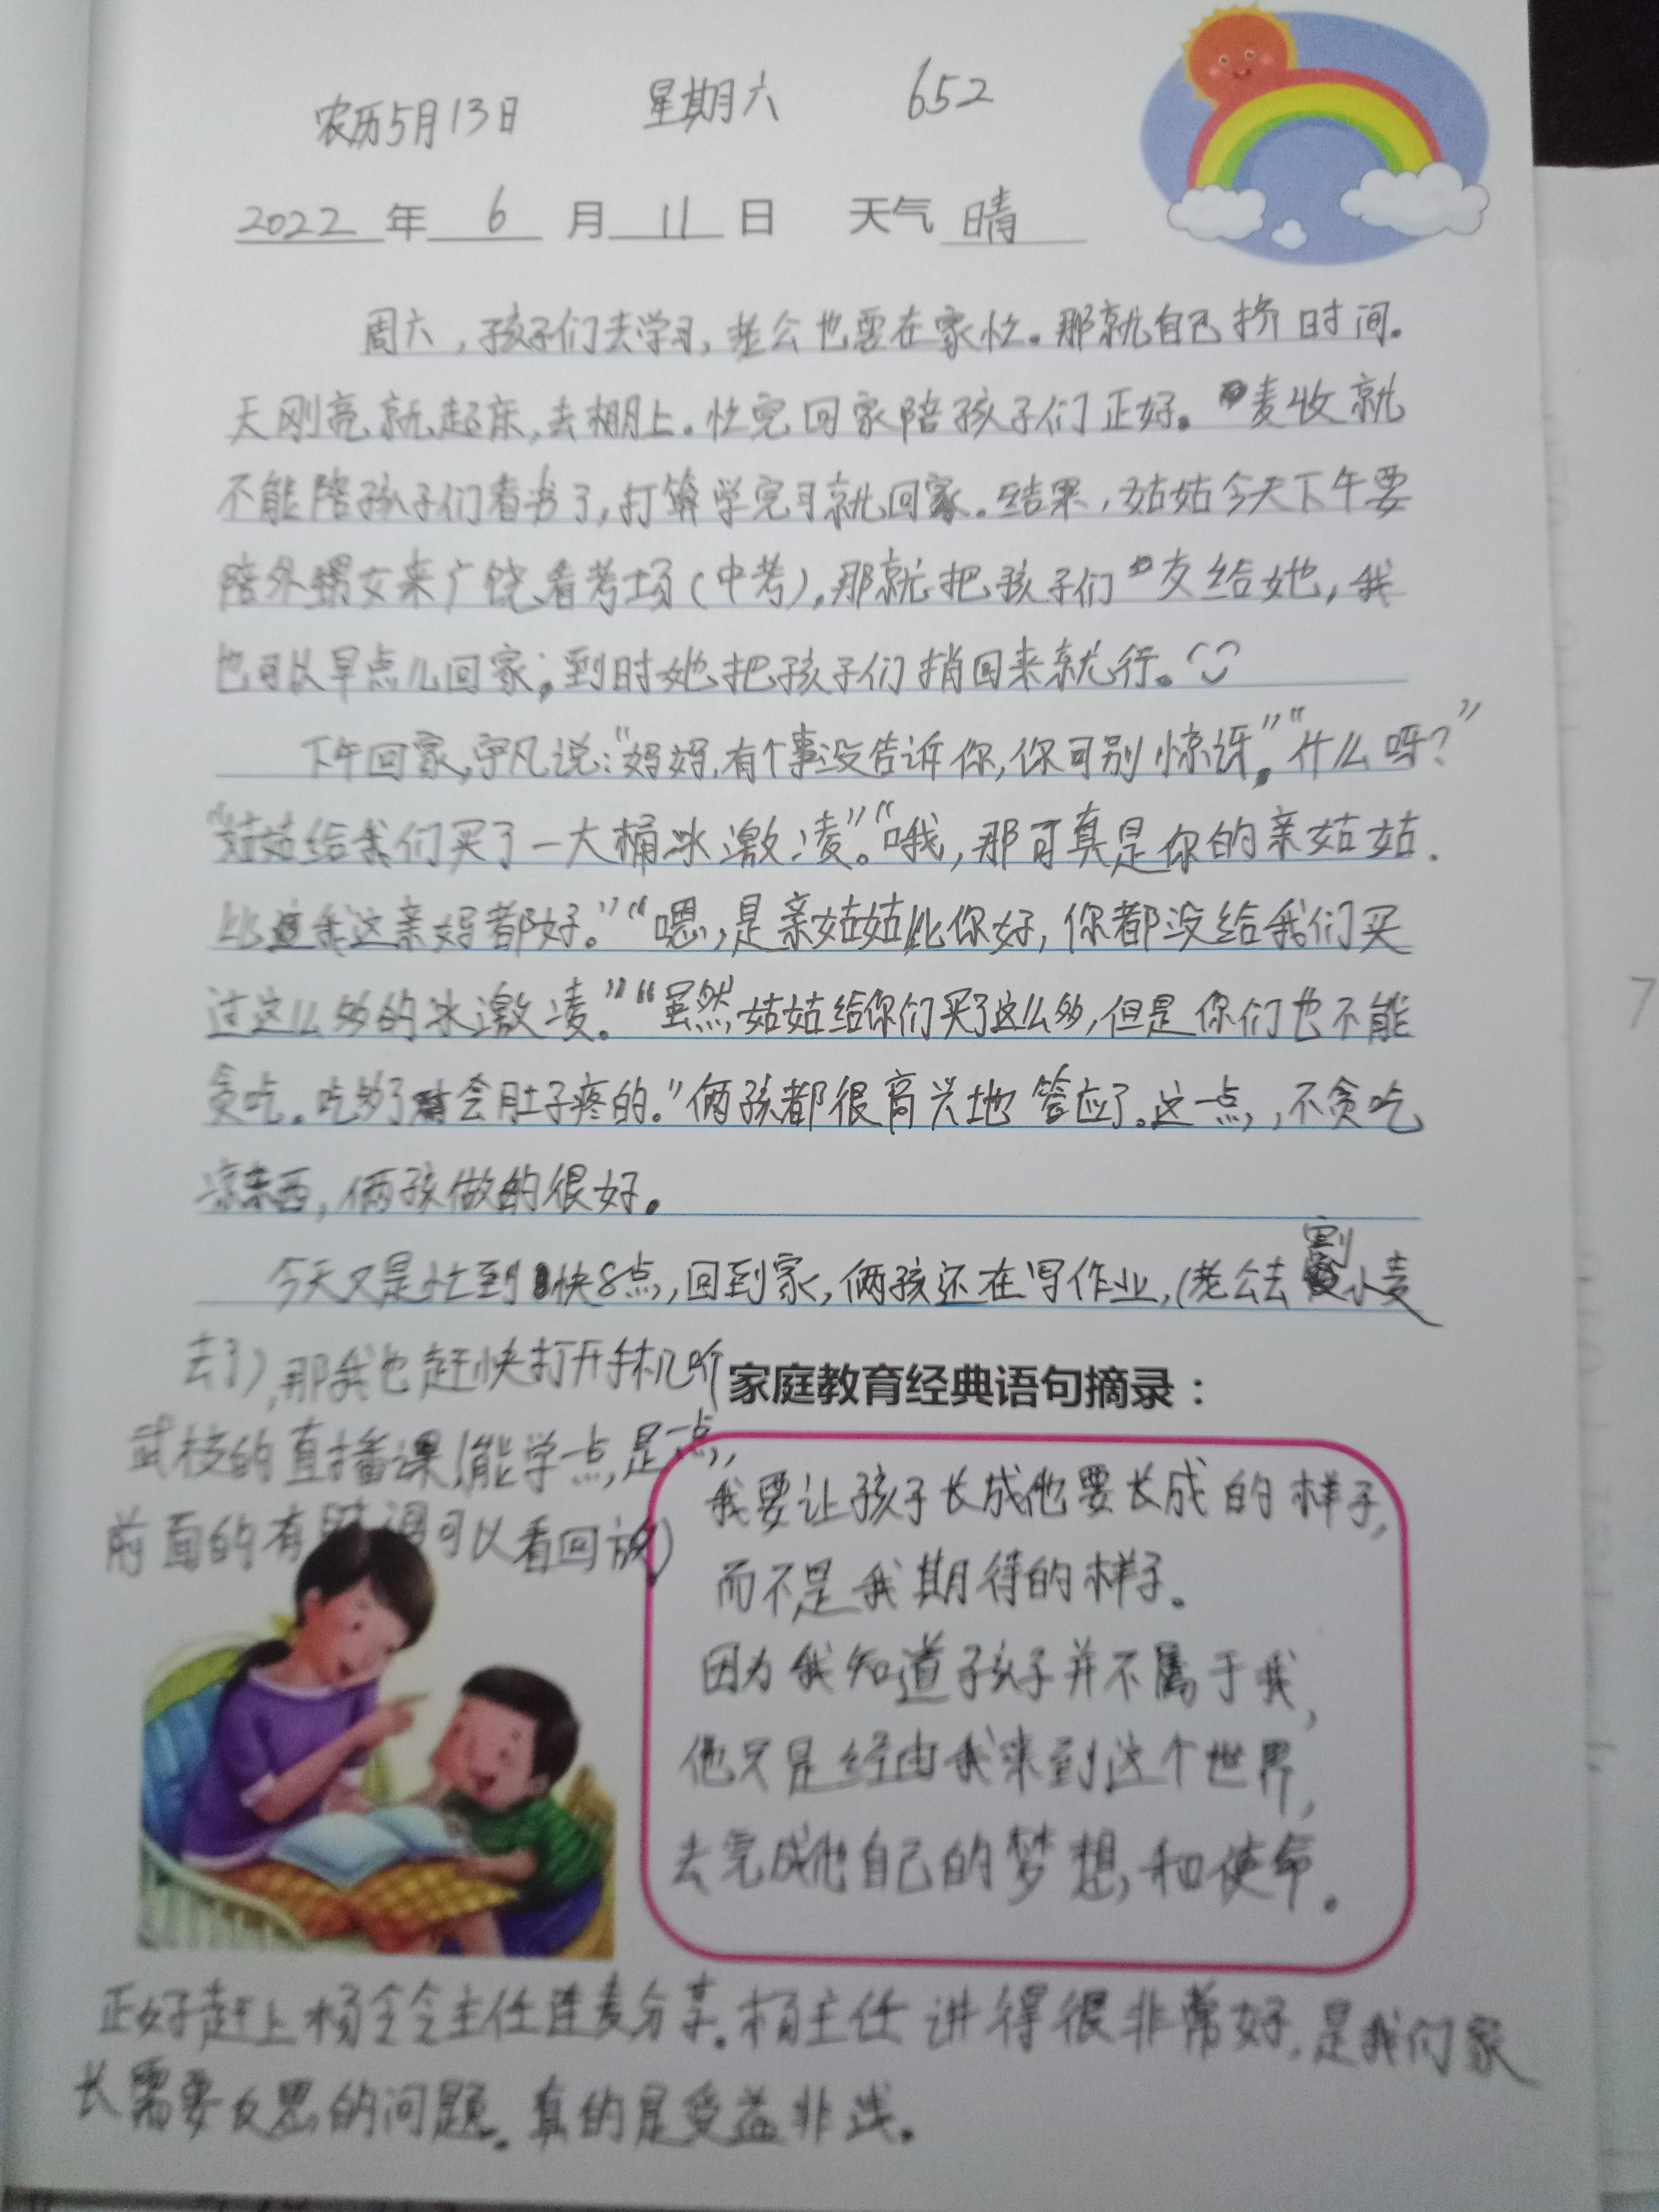 农历5月13日 星期六 652
2022年 6 月 11 日 天气 晴
周六,孩子们去学习,老公也要在家忙。那就自己挤时间。
天刚亮就起床,去棚上。忙完回家陪孩子们正好。麦收就
不能陪孩子们看书了,打算学完习就回家。结果,姑姑今天下午要
陪外甥女来广饶看考场(中考),那就把孩子们交给她,我
也可以早点儿回家;到时她把孩子们捎回来就行。
下午回家,宇凡说:“妈妈,有个事没告诉你,你可别惊讶。”“什么呀?”
“姑姑给我们买了一大桶冰激凌”“哦,那可真是你的亲姑姑.
比我这亲妈都好。”“嗯,是亲姑姑比你好,你都没给我们买
过这么多的冰激凌。”“虽然姑姑给你们买了这么多,但是你们也不能
贪吃。吃多了会肚子疼的。”俩孩都很高兴地答应了。这一点,,不贪吃
凉东西,俩孩做的很好。
今天又是忙到快8点,回到家,俩孩还在写作业,(老公去割小麦
去了),那我也赶快打开手机听
武校的直播课,(能学一点,是一点,
前面的有时间可以看回放)
家庭教育经典语句摘录:
我要让孩子长成他要长成的样子,
而不是我期待的样子。
因为我知道孩子并不属于我,
他只是经由我来到这个世界,
去完成他自己的梦想,和使命。
正好赶上杨全全主任连麦分享。杨主任讲得很非常好,是我们家
长需要反思的问题。真的是受益非浅。